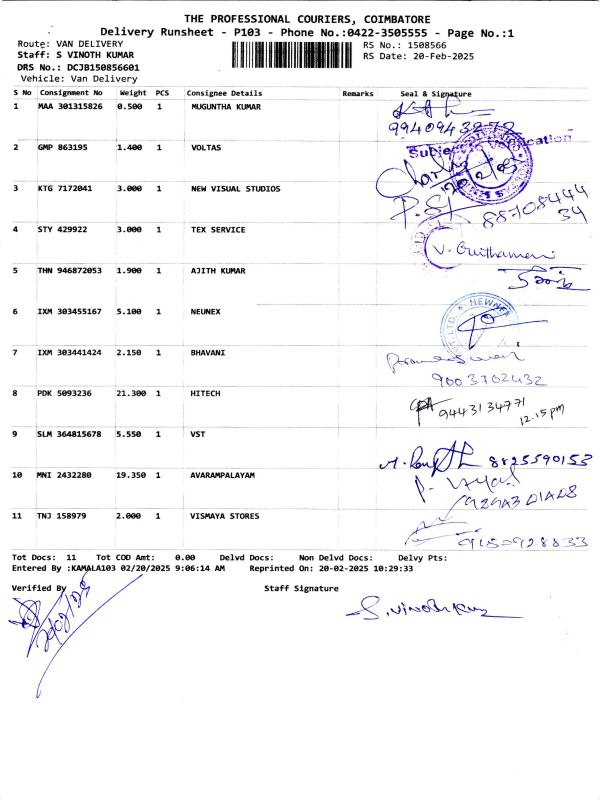 THE PROFESSIONAL COURIERS, COIMBATORE
Delivery Runsheet - P103 - Phone No.:0422-3505555 - Page No.:1
Route: VAN DELIVERY RS No.: 1508566
Staff: S VINOTH KUMAR RS Date: 20-Feb-2025
DRS No.: DCJB150856601
Vehicle: Van Delivery
S No Consignment No Weight PCS Consignee Details Remarks Seal & Signature
1 MAA 301315826 0.500 1 MUGUNTHA KUMAR
Subject to Verification
2 GMP 863195 1.400 1 VOLTAS
3 KTG 7172041 3.000 1 NEW VISUAL STUDIOS
8870844434
4 STY 429922 3.000 1 TEX SERVICE
5 THN 946872053 1.900 1 AJITH KUMAR
6 IXM 303455167 5.100 1 NEUNEX
7 IXM 303441424 2.150 1 BHAVANI
9003702432
8 PDK 5093236 21.300 1 HITECH
9443134771
12.15pm
9 SLM 364815678 5.550 1 VST
8825590153
10 MNI 2432280 19.350 1 AVARAMPALAYAM
11 TNJ 158979 2.000 1 VISMAYA STORES
Tot Docs: 11 Tot COD Amt: 0.00 Delvd Docs: Non Delvd Docs: Delvy Pts:
Entered By :KAMALA103 02/20/2025 9:06:14 AM Reprinted On: 20-02-2025 10:29:33
Verified By Staff Signature
S. Vinoth Kumar